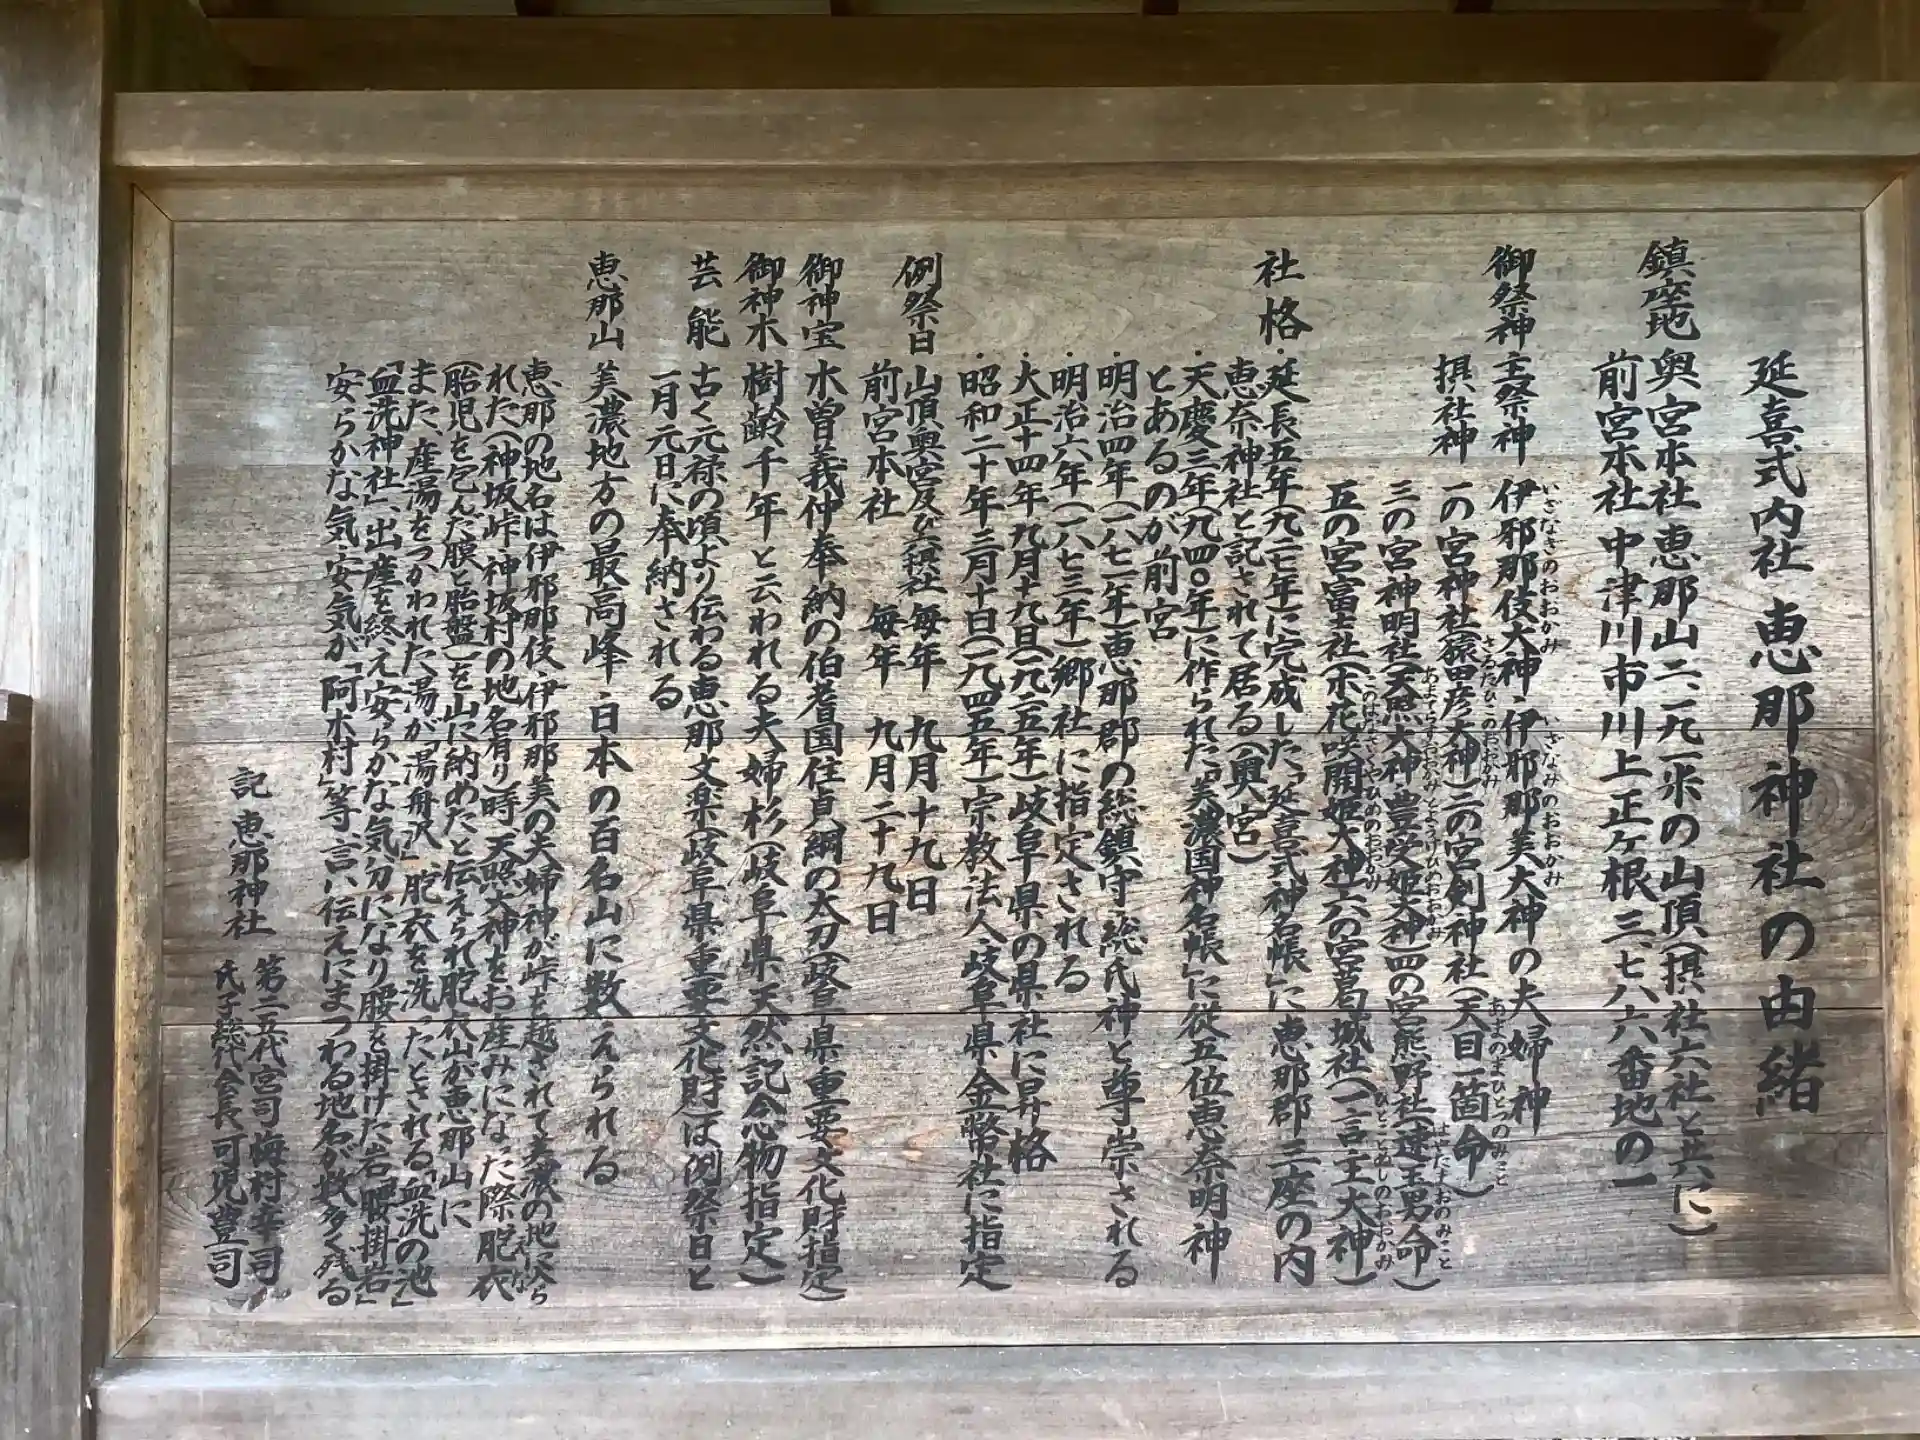 延喜式内社 恵那神社の由緒
鎮座地 奥宮本社 恵那山二、一九一米の山頂(摂社六社と共に)
前宮本社 中津川市川上正ヶ根三、七八六番地の一
御祭神 主祭神 伊邪那伎大神・伊邪那美大神の夫婦神
いざなきのおおかみ いざなみのおおかみ
摂社神 一の宮神社(猿田彦大神)二の宮剣神社(天目一箇命)
さるたひこのおおかみ あまのまひとつのみこと
三の宮神明社(天照大神・豊受姫大神)四の宮熊野社(速玉男命)
あまてらすおおかみ とようけひめのおおかみ はやたまおのみこと
五の宮富士社(木花咲開姫大神)六の宮葛城社(一言主大神)
このはなさくやひめのおおかみ ひとことぬしのおおかみ
社格 ・延長五年(九二七年)に完成した「延喜式神名帳」に恵那郡三座の内
恵奈神社と記されて居る(奥宮)
・天慶三年(九四〇年)に作られた「美濃国神名帳」に従五位恵奈明神
とあるのが前宮
・明治四年(一八七一年)恵那郡の総鎮守・総氏神と尊崇される
・明治六年(一八七三年)郷社に指定される
・大正十四年九月十九日(一九二五年)岐阜県の県社に昇格
・昭和二十年三月十日(一九四五年)宗教法人・岐阜県金幣社に指定
例祭日 山頂奥宮及び六摂社 毎年 九月十九日
前宮本社 毎年 九月二十九日
御神宝 木曽義仲奉納の伯耆国住貞綱の大刀(岐阜県重要文化財指定)
御神木 樹齢千年と云われる夫婦杉(岐阜県天然記念物指定)
芸能 古く元禄の頃より伝わる恵那文楽(岐阜県重要文化財)は例祭日と
一月元日に奉納される
恵那山 美濃地方の最高峰・日本の百名山に数えられる
恵那の地名は伊邪那伎・伊邪那美の夫婦神が峠を越されて美濃の地に入ら
れた(神坂峠・神坂村の地名有り)時天照大神をお産みになった際胞衣
えな
(胎児を包んだ膜と胎盤)を山に納めたと伝えられ胞衣山が恵那山に
また、産湯をつかわれた湯が「湯舟沢」、胞衣を洗ったとされる「血洗の池」
「血洗神社」、出産を終え安らかな気分になり腰を掛けた岩「腰掛岩」
安らかな気・安気が「阿木村」等、言い伝えにまつわる地名が数多く残る
記 恵那神社 第二五代宮司 梅村幸司
氏子総代会長 可児豊司